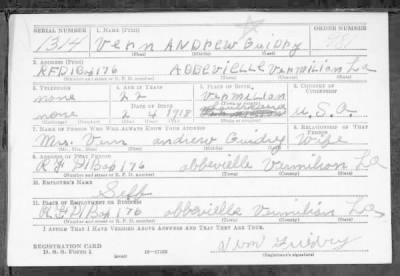 SERIAL NUMBER 1. NAME (Print) ORDER NUMBER
1314 Vern ANDREW Guidry
(First) (Middle) (Last)
2. ADDRESS (Print)
RFD1 Box 176 ABBEVIELLE Vermilian La
(Number and street or R. F. D. number) (Town) (County) (State)
3. TELEPHONE 4. AGE IN YEARS 5. PLACE OF BIRTH 6. COUNTRY OF CITIZENSHIP
none 22 Vermilian
(Town or county)
DATE OF BIRTH
none 2 4 1918 U.S.A.
(Mo.) (Day) (Yr.) (State or country)
7. NAME OF PERSON WHO WILL ALWAYS KNOW YOUR ADDRESS 8. RELATIONSHIP OF THAT PERSON
Mrs. Vern andrew Guidry Wife
(Mr., Mrs., Miss) (First) (Middle) (Last)
9. ADDRESS OF THAT PERSON
R F D1 Box 176 abbeville Vermilion La
(Number and street or R. F. D. number) (Town) (County) (State)
10. EMPLOYER'S NAME
Self
11. PLACE OF EMPLOYMENT OR BUSINESS
R F D1 Box 176 abbeville Vermilion La
(Number and street or R. F. D. number) (Town) (County) (State)
I AFFIRM THAT I HAVE VERIFIED ABOVE ANSWERS AND THAT THEY ARE TRUE.
REGISTRATION CARD
D. S. S. Form 1 (over) 16—17105 (Registrant's signature)
Guidry